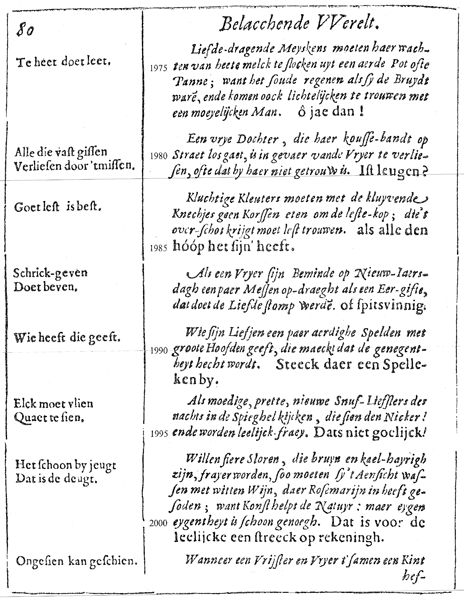 80
Belacchende VVerelt.
Te heet doet leet.
Liefde-dragende Meyskens moeten haer wach-
1975 ten van heete melck te slocken uyt een aerde Pot ofte
Panne; want het soude regenen als sy de Bruydt
warē, ende komen oock lichtelijcken te trouwen met
een moeyelijcken Man. ô jae dan!
Alle die vast gissen
Verliesen door 'tmissen.
Een vrye Dochter, die haer kousse-bandt op
1980 Straet los gaet, is in gevaer vande Vryer te verlie-
sen, ofte dat hy haer niet getrouw is. Ist leugen?
Goet lest is best.
Kluchtige Kleuters moeten met de kluyvende
Knechjes geen Korssen eten om de leste-kop; die't
over-schot krijgt moet lest trouwen. als alle den
1985 hóóp het sijn' heeft.
Schrick-geven
Doet beven.
Als een Vryer sijn Beminde op Nieuw-Iaers-
dagh een paer Messen op-draeght als een Eer-gifte,
dat doet de Liefde stomp werdē. of spitsvinnig.
Wie heeft die geeft.
Wie sijn Liefjen een paer aerdighe Spelden met
1990 groote Hoofden geeft, die maeckt dat de genegent-
heyt hecht wordt. Steeck daer een Spelle-
ken by.
Elck moet vlien
Quaet te sien.
Als moedige, prette, nieuwe Snuf-Liefsters des
nachts in de Spieghel kijcken, die sien den Nicker!
1995 ende worden leelijck-fraey. Dats niet goelijck!
Het schoon by jeugt
Dat is de deugt.
Willen fiere Sloren, die bruyn en kael-hayrigh
zijn, frayer worden, soo moeten sy't Aensicht was-
sen met witten Wijn, daer Rosemarijn in heeft ge-
soden; want Konst helpt de Natuyr: maer eygen
2000 eygentheyt is schoon genoegh. Dat is voor de
leelijcke een streeck op rekeningh.
Ongesien kan geschien.
Wanneer een Vrijster en Vryer t'samen een Kint
hef-